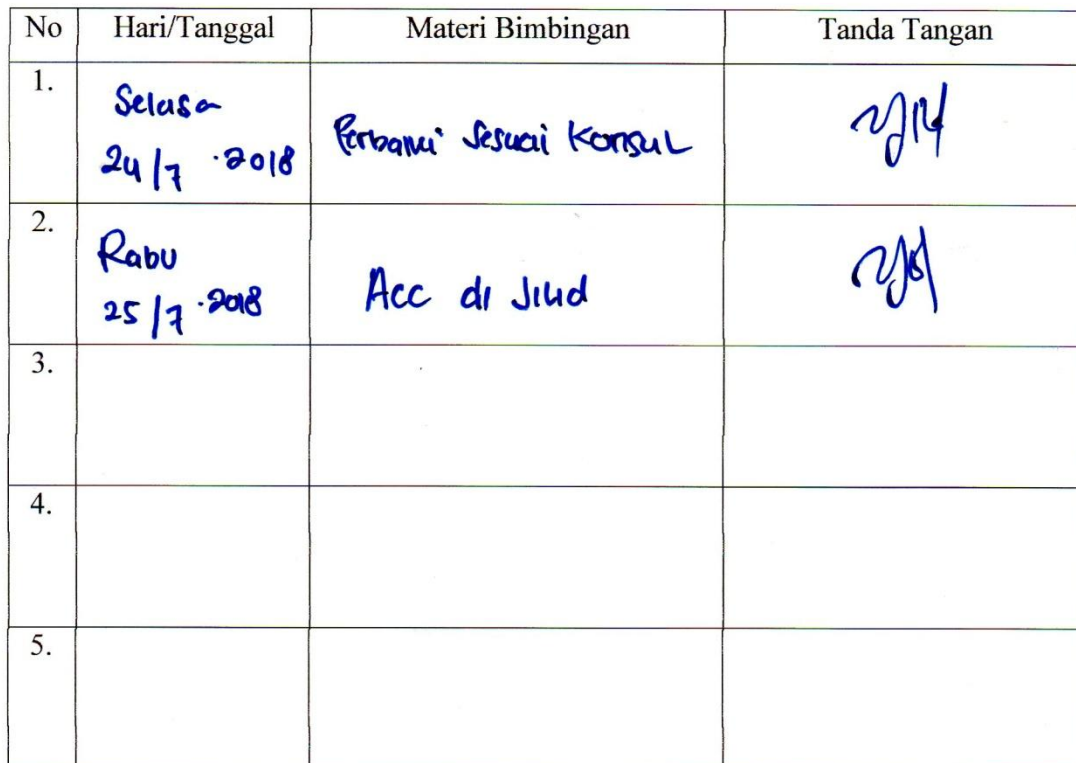 No Hari/Tanggal Materi Bimbingan Tanda Tangan
1.
Selasa
24/7 .2018
Perbaiki Sesuai Konsul
2.
Rabu
25/7 .2018
Acc di Jilid
3.
4.
5.